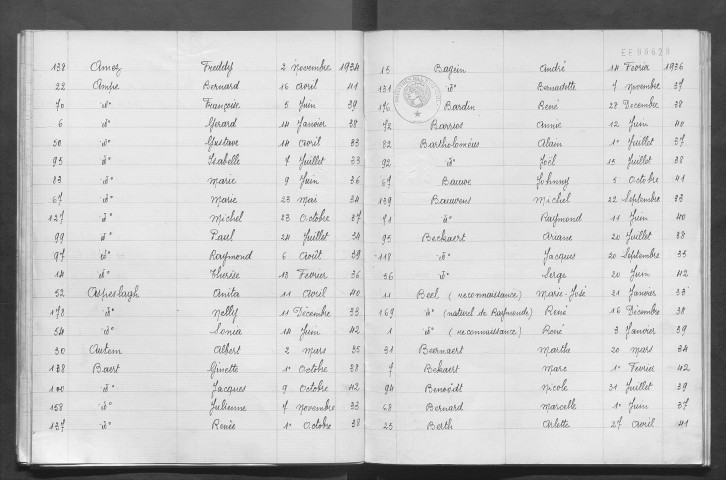 138 Amez Freddy 2 Novembre 1934
22 Ampe Bernard 16 Avril 41
70 d° Françoise 5 Juin 39
6 d° Gérard 14 Janvier 38
50 d° Gustave 14 Avril 33
95 d° Isabelle 7 Juillet 33
83 d° Marie 9 Juin 36
67 d° Marie 23 Mai 34
127 d° Michel 23 Octobre 37
99 d° Paul 24 Juillet 34
97 d° Raymond 6 Août 39
14 d° Thérèse 13 Février 36
52 Aspeslagh Anita 11 Avril 40
178 d° Nelly 11 Décembre 33
54 d° Sonia 14 Juin 42
30 Autem Albert 2 Mars 35
138 Baert Ginette 1° Octobre 38
100 d° Jacques 9 Octobre 42
158 d° Julienne 7 Novembre 33
137 d° Renée 1° Octobre 38
15 Bagein André 14 Février 1936
131 d° Bernadette 7 Novembre 37
176 Bardin René 28 Décembre 38
72 Barriot Annie 12 Juin 40
82 Bartholoméus Alain 1° Juillet 37
92 d° Joël 15 Juillet 38
67 Bauwe Johnny 5 Octobre 41
139 Bauwens Michel 22 Septembre 33
71 d° Raymond 11 Juin 40
95 Beckaert Ariane 20 Juillet 38
118 d° Jacques 20 Septembre 35
56 d° Serge 20 Juin 42
11 Beel (reconnaissance) Marie-José 31 Janvier 33
169 d° (naturel de Raymonde) René 16 Décembre 38
1 d° (reconnaissance) René 3 Janvier 39
31 Beernaert Martha 20 Mars 34
7 Bekaert Marc 1° Février 42
94 Benoédt Nicole 31 Juillet 39
68 Bernard Marcelle 1° Juin 37
25 Berth Arlette 27 Avril 41